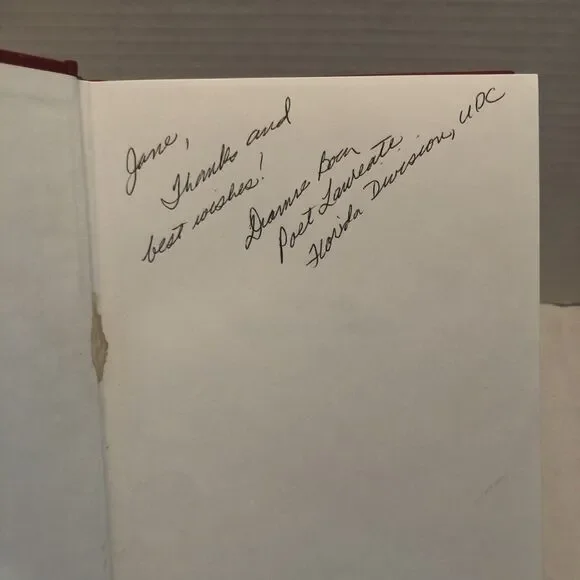 Jane,
Thanks and
best wishes!
Dianne
Poet Laureate
Florida Division, UDC